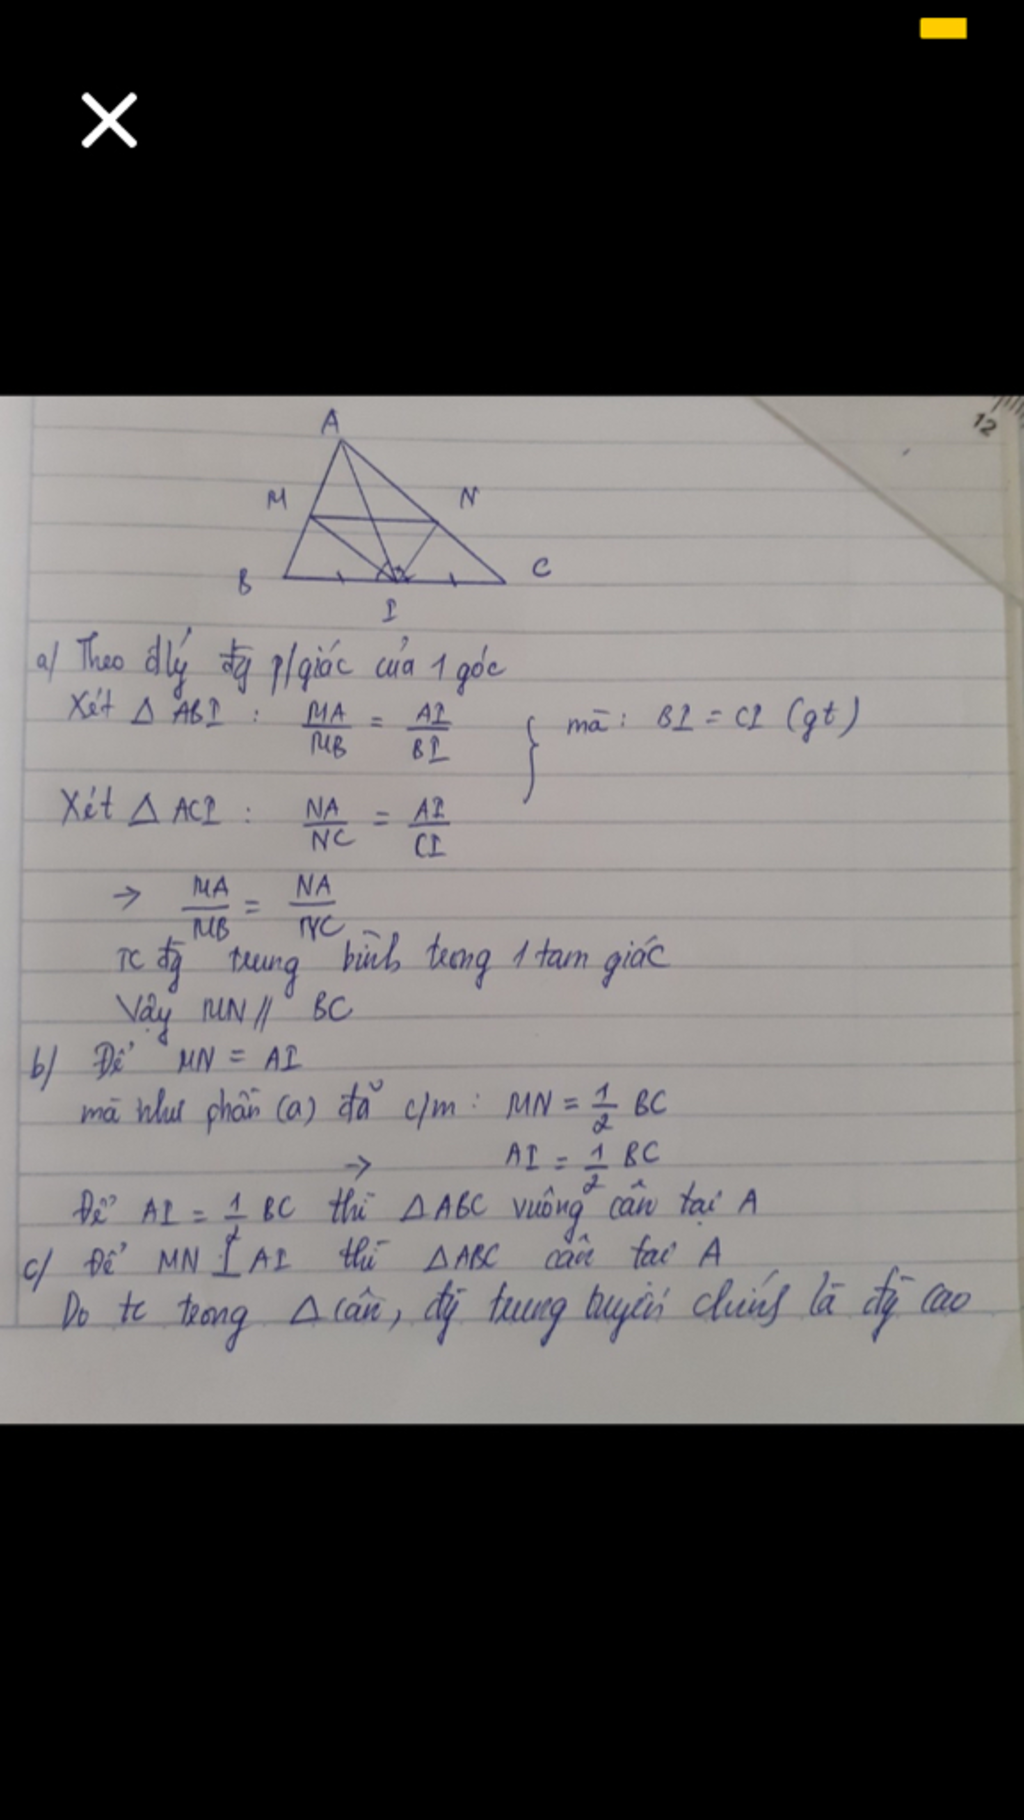 12
A
M
N
B
C
I
a/ Theo đlý đg p/giác của 1 góc
Xét Δ ABI : MA/MB = AI/BI } mà : BI = CI (gt)
Xét Δ ACI : NA/NC = AI/CI
→ MA/MB = NA/NC
TC đg trung bình trong 1 tam giác
Vậy MN // BC
b/ Để MN = AI
mà như phần (a) đã c/m : MN = 1/2 BC
→ AI = 1/2 BC
Để AI = 1/2 BC thì ΔABC vuông cân tại A
c/ Để MN ⊥ AI thì ΔABC cân tại A
Do tc trong Δ cân, đg trung tuyến chính là đg cao